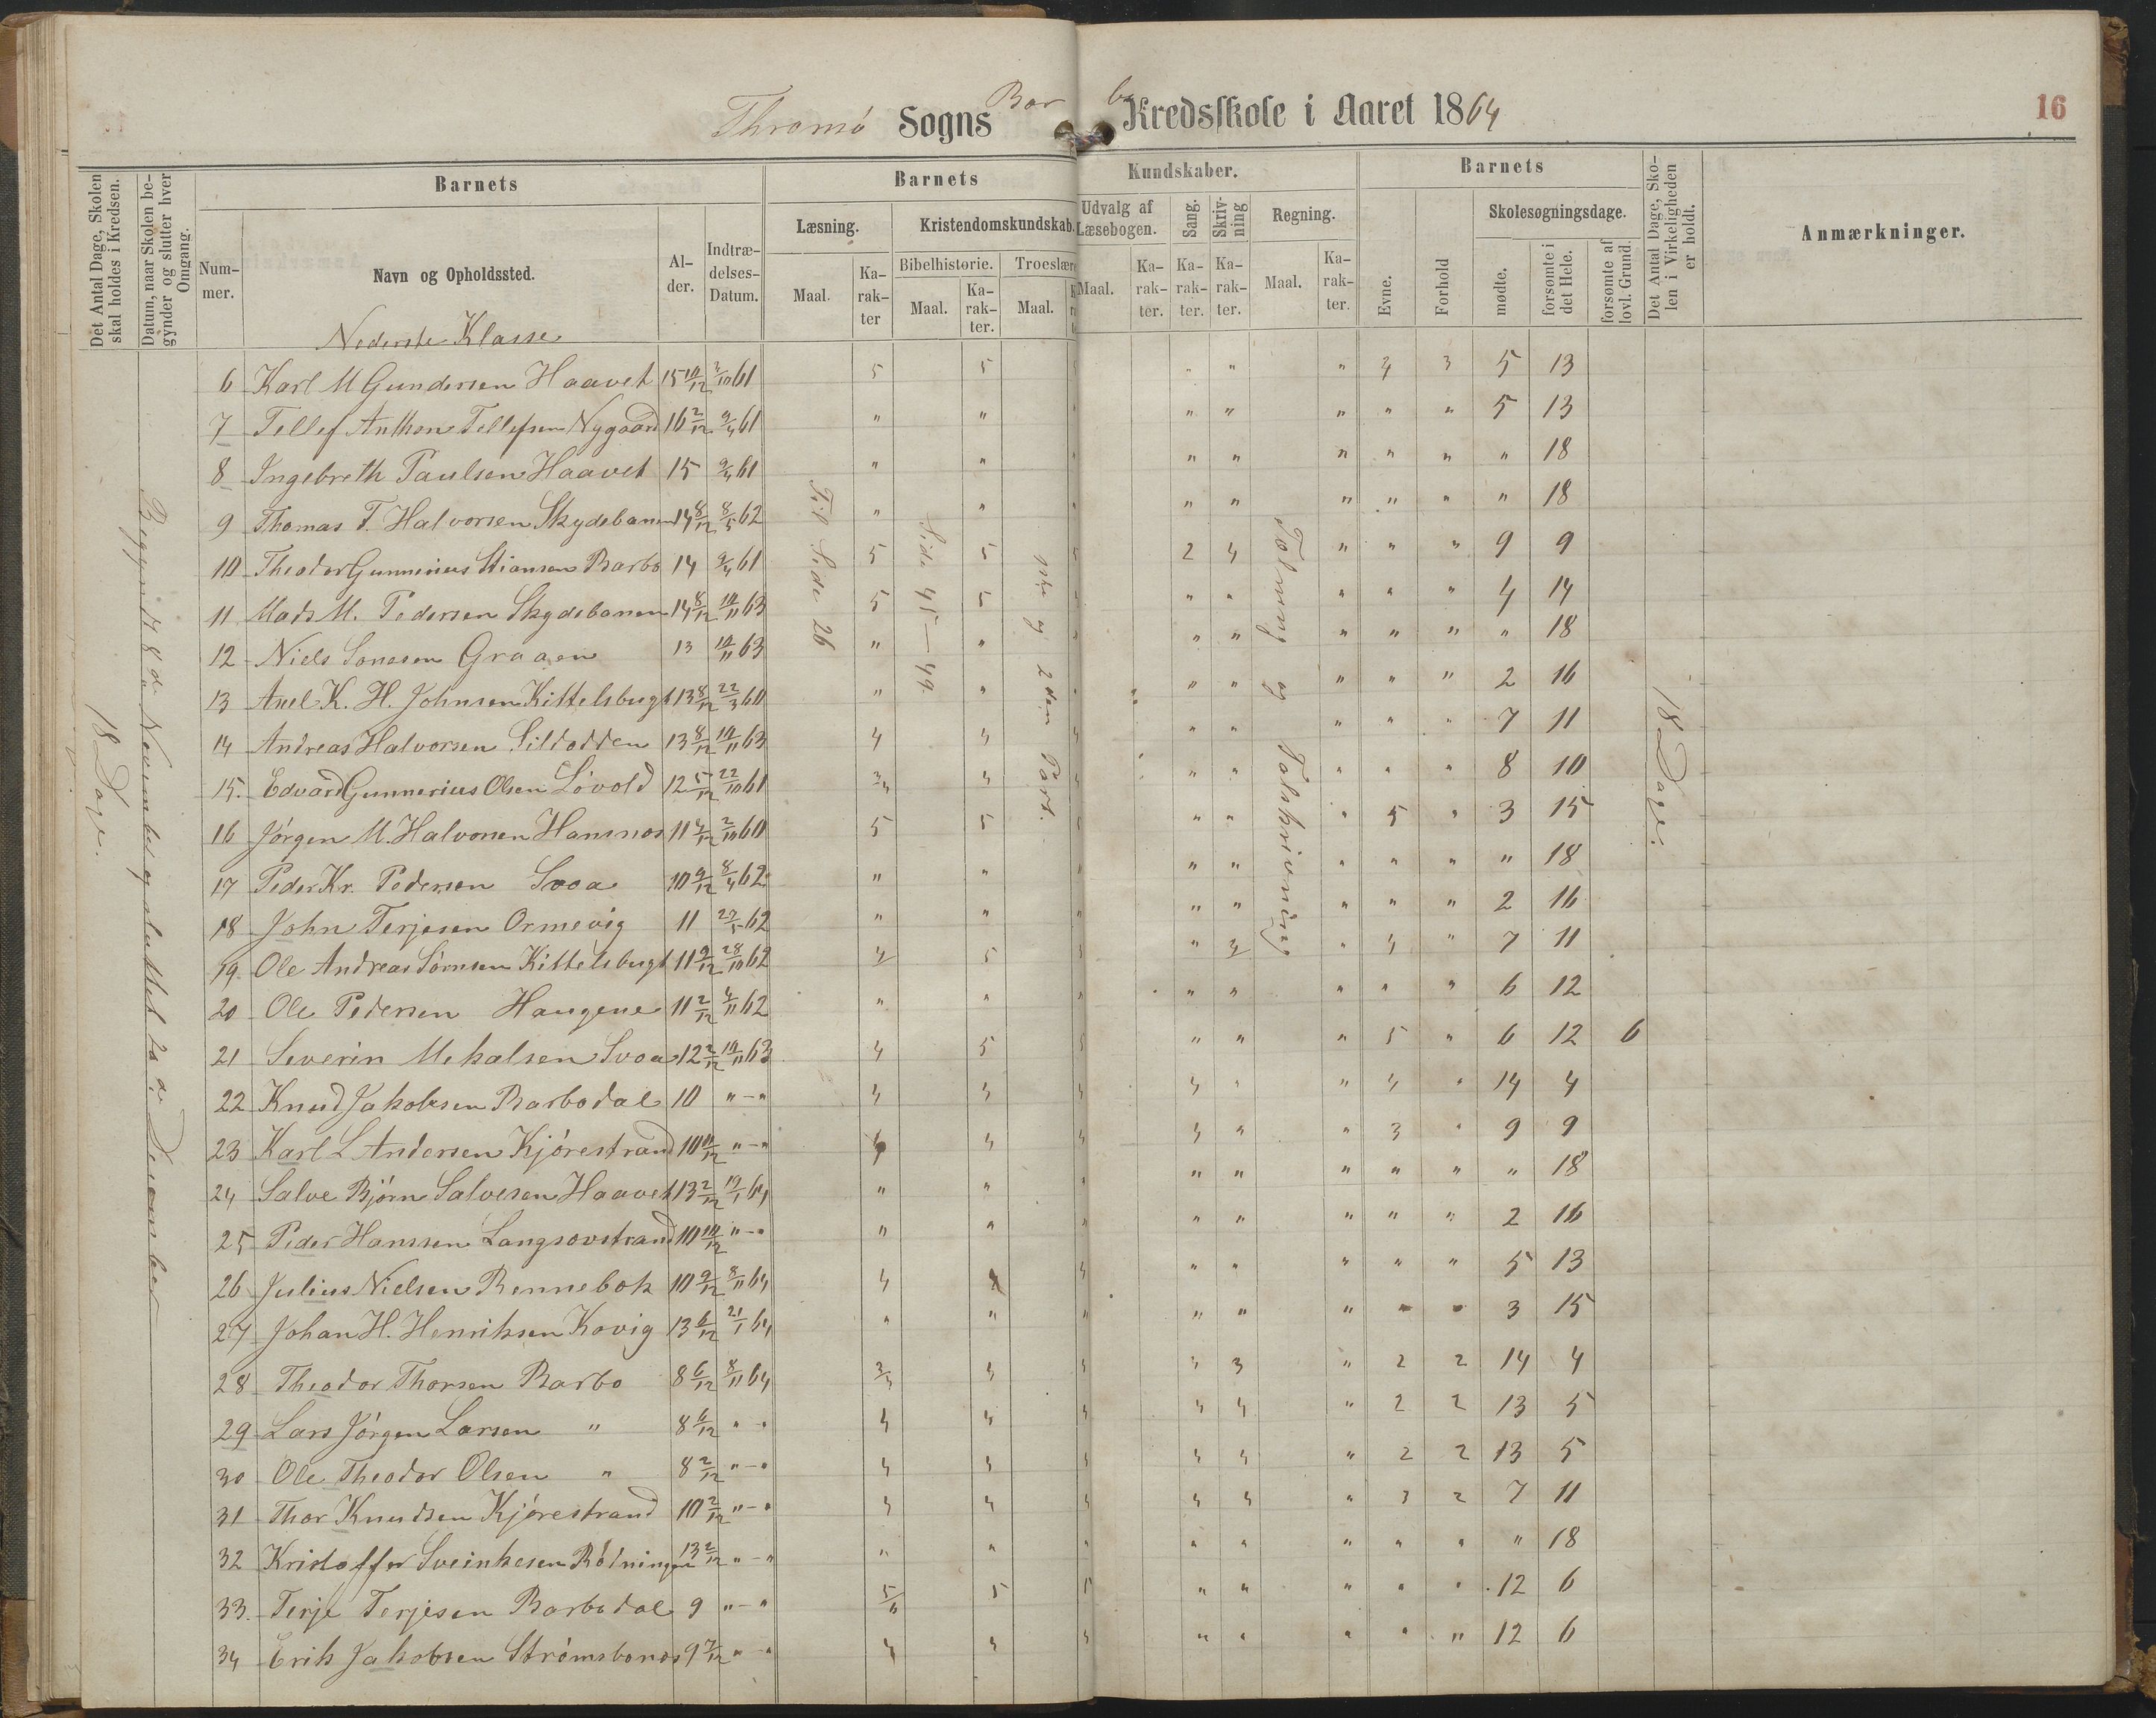 Thromø Sogns Barbo Kredsskole i Aaret 1864
16
Det Antal Dage, Skolen skal holdes i Kredsen.
Datum, naar Skolen begynder og slutter hver Omgang.
Barnets
Barnets Kundskaber.
Barnets
Det Antal Dage, Skolen i Virkeligheden er holdt.
Anmærkninger.
Nummer.
Navn og Opholdssted.
Alder.
Indtrædelses-Datum.
Læsning.
Kristendomskundskab.
Udvalg af Læsebogen.
Sang.
Skrivning
Regning.
Evne.
Forhold
Skolesøgningsdage.
Maal.
Karakter
Bibelhistorie.
Troeslære
Maal.
Karakter.
Maal.
Maal.
Karakter.
Karakter.
Karakter.
Maal.
Karakter.
mødte.
forsømte i det Hele.
forsømte af lovl. Grund.
Nederste Klasse
6 Karl M Gundersen Haavet 15 10/12 2/10 61 5 5 " " " 4 3 5 13
7 Tellef Anthon Tellefsen Nygaard 16 2/12 9/4 61 " " " " " " " 5 13
8 Ingebreth Paulsen Haavet 15 9/4 61 " " " " " " " " 18
9 Thomas T. Halvorsen Skydebanen 14 8/12 8/5 62 " " " " " " " " 18
10 Theodor Gunnerius Stiansen Barbo 14 9/4 61 5 5 5 2 4 " " " 9 9
11 Mads M. Pedersen Skydebanen 14 8/12 10/11 63 5 5 " " " " " 4 14
12 Niels Sonesen Graaen 13 10/11 63 " " " " " " " " 18
13 Axel K. H. Johnsen Kittelsbugt 13 8/12 22/3 60 " " " " " " " 2 16
14 Andreas Halvorsen Sildodden 13 8/12 10/11 63 4 4 4 " " " " " 7 11
15. Edvard Gunnerius Olsen Løvold 12 5/12 22/10 61 3/4 4 4 " " " " " 8 10
16 Jørgen M. Halvorsen Hansnæs 11 4/12 2/10 60 5 5 " " " 5 " 3 15
17 Peder Kr. Pedersen Svoa 10 9/12 8/4 62 " " " " " " " " 18
18 John Terjesen Ormevig 11 22/5 62 " " " " " " " " 2 16
19. Ole Andreas Sørensen Kittelsbugt 11 9/12 28/10 62 4 5 " " 4 " 7 11
20 Ole Pedersen Haugene 11 2/12 4/11 62 " " " " " " " " 6 12
21 Severin Mekalsen Svoa 12 2/12 10/11 63 4 5 5 " " " 5 " 6 12 6
22 Knud Jakobsen Barbodal 10 "-" 4 4 4 4 " " 4 " 14 4
23 Karl L Andersen Kjørestrand 10 10/12 "-" 4 4 4 " " 3 " 9 9
24 Salve Bjørn Salvesen Haavet 13 2/12 19/1 64 " " " " " " " " " 18
25 Peder Hanssen Langsævstrand 10 10/12 "-" " " " " " " " " 2 16
26 Julius Nielsen Rennebok 10 9/12 8/11 64 4 4 " " " " " 5 13
27 Johan H. Henriksen Kovig 13 6/12 21/1 64 " " " " " " " " 3 15
28 Theodor Thorsen Barbo 8 6/12 8/11 64 3/4 4 4 4 3 " 2 2 14 4
29 Lars Jørgen Larsen " 8 6/12 " " 4 4 4 4 4 " 2 2 13 5
30 Ole Theodor Olsen " 8 2/12 "-" 4 4 4 4 4 " 2 2 13 5
31 Thor Knudsen Kjørestrand 10 2/12 "-" 4 4 4 4 4 " 3 2 7 11
32 Kristoffer Sveinkesen Rølningen 13 2/12 "-" " " " " " " " " " 18
33. Terje Terjesen Barbodal 9 "-" 5 5 " " " " " 12 6
34 Erik Jakobsen Strømsbonæs 9 7/12 "-" 4 4 4 " " " " " 12 6
18 Dage.
Begyndt 8de November og sluttet 20de December
Til Side 26
Side 45–49.
1ste og 2den Part.
Tælning og Talskrivning
18 Dage.